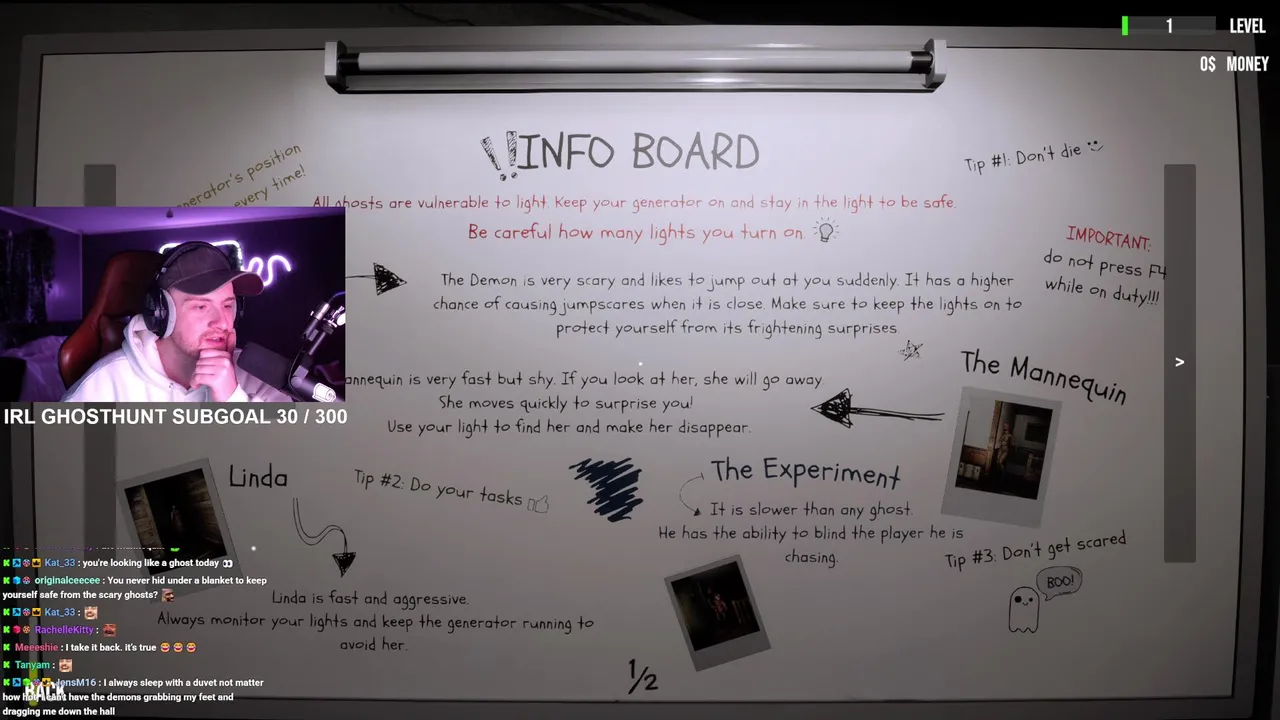 1 LEVEL
0$ MONEY
!! INFO BOARD
Tip #1: Don't die
nerator's position
every time!
All ghosts are vulnerable to light. Keep your generator on and stay in the light to be safe.
Be careful how many lights you turn on.
IMPORTANT:
do not press F4
while on duty!!!
The Demon is very scary and likes to jump out at you suddenly. It has a higher
chance of causing jumpscares when it is close. Make sure to keep the lights on to
protect yourself from its frightening surprises.
>
The Mannequin
annequin is very fast but shy. If you look at her, she will go away.
She moves quickly to surprise you!
Use your light to find her and make her disappear.
IRL GHOSTHUNT SUBGOAL 30 / 300
Linda
Tip #2: Do your tasks
The Experiment
It is slower than any ghost.
He has the ability to blind the player he is
chasing.
Tip #3: Don't get scared
BOO!
Linda is fast and aggressive.
Always monitor your lights and keep the generator running to
avoid her.
1/2
Kat_33 : you're looking like a ghost today
originalceecee : You never hid under a blanket to keep
yourself safe from the scary ghosts?
Kat_33 :
RachelleKitty :
Meeeshie : I take it back. it's true
Tanyam :
JensM16 : I always sleep with a duvet not matter
how hot I can't have the demons grabbing my feet and
dragging me down the hall
BACK